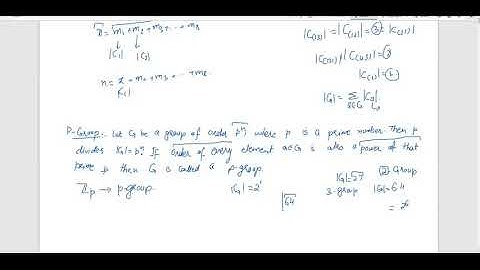 n = m₁ + m₂ + m₃ + ... + mₖ
|C₁| |C₂|
n = 1 + m₂ + m₃ + ... + mₖ
|C(1)|
|C(1)| =
|G| = Σ
P-Group:- Let G be a group of order pⁿ where p is a prime number. Then p
divides |G| = pⁿ. If order of every element a∈G is also a power of that
prime p then G is called a p-group.
ℤp → p-group. |G| = 2'
|G|=27
3-group |G|=64
64